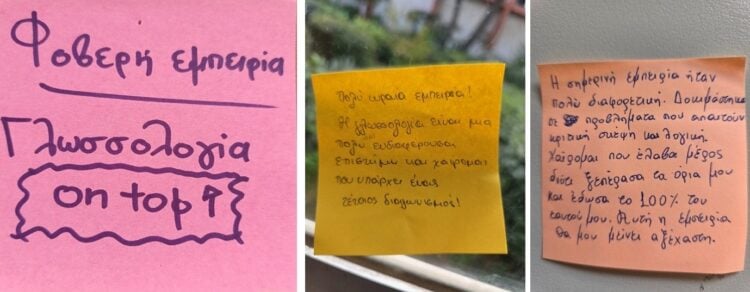 Φοβερή εμπειρία
Γλωσσολογία
on top ↑
Πολύ ωραία εμπειρία!
Η γλωσσολογία είναι μια
πολύ ενδιαφέρουσα
επιστήμη και χαίρομαι
που υπάρχει ένας
τέτοιος διαγωνισμός!
Η σημερινή εμπειρία ήταν
πολύ διαφορετική. Δοκιμάστηκα
σε προβλήματα που απαιτούν
κριτική σκέψη και λογική.
Χαίρομαι που έλαβα μέρος
διότι ξεπέρασα τα όρια μου
και έδωσα το 100% του
εαυτού μου. Αυτή η εμπειρία
θα μου μείνει αξέχαστη.